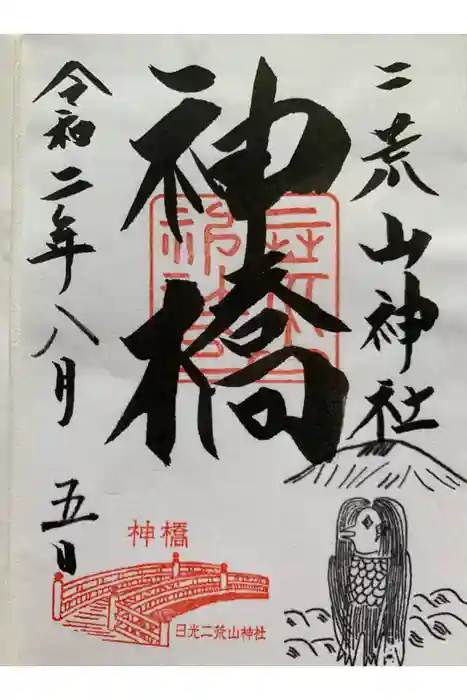 二荒山神社
神橋
令和二年八月五日
神橋
日光二荒山神社